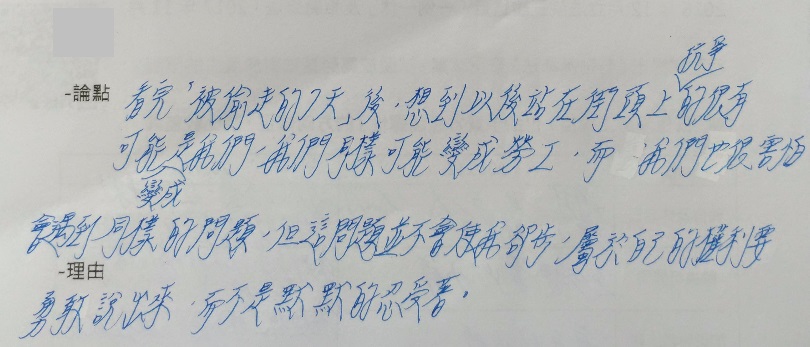 抗爭
-論點 看完「被偷走的7天」後，想到以後站在街頭上的很有
可能是我們，我們同樣可能變成勞工，而我們也很害怕
變成
會遇到同樣的問題，但這問題並不會使我卻步，屬於自己的權利要
-理由
勇敢說出來，而不是默默的忍受著。